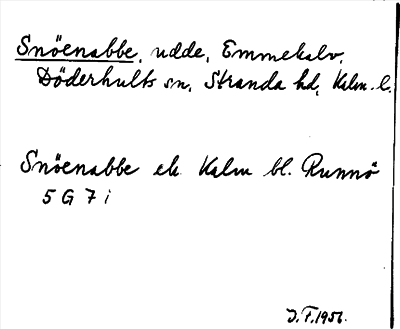 Snöenabbe, udde, Emmekalv,
Döderhults sn, Stranda hd, Kalm. l.
Snöenabbe ek Kalm bl. Runnö
5 G 7 i
J.F. 1956.